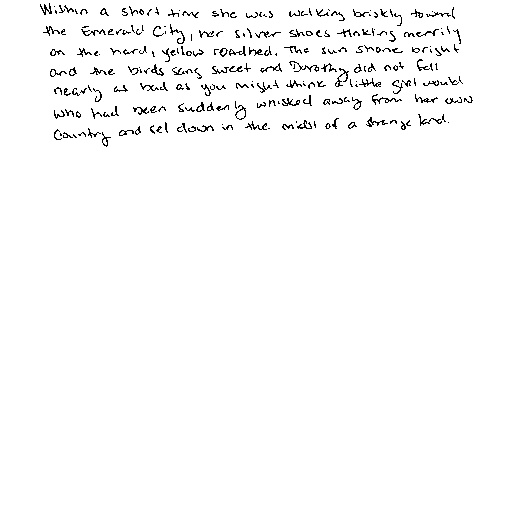 Within a short time she was walking briskly toward
the Emerald City, her silver shoes tinkling merrily
on the hard, yellow roadbed. The sun shone bright
and the birds sang sweet and Dorothy did not fell
nearly as bad as you might think a little girl would
who had been suddenly whisked away from her own
country and set down in the midst of a strange land.